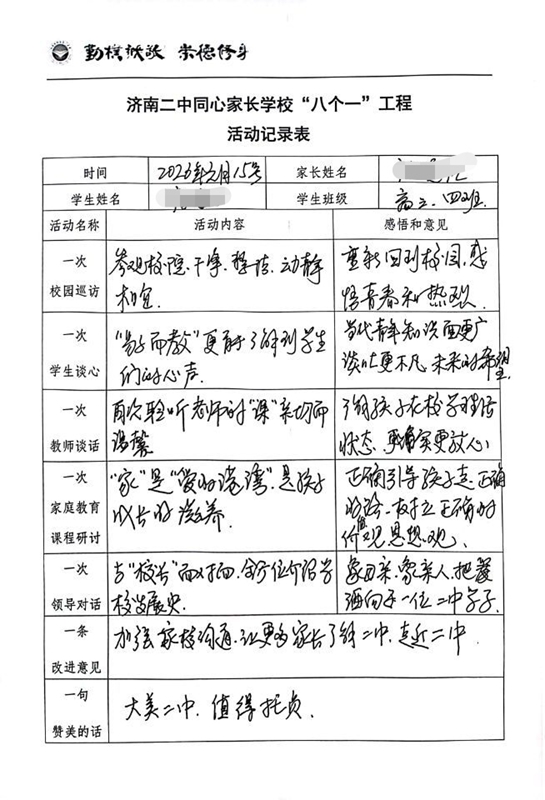 勤朴诚毅 崇德修身
济南二中同心家长学校“八个一”工程
活动记录表
时间 2023年5月15号 家长姓名
学生姓名 学生班级 高二.四班.
活动名称 活动内容 感悟和意见
一次
校园巡访
参观校院.干净.整洁.动静
相宜.
重新回到校园.感
悟青春和热烈.
一次
学生谈心
“易子而教”更能了解到学生
们的心声.
当代青年知识面更广
谈吐更不凡.未来的希望.
一次
教师谈话
再次聆听老师的“课”亲切而
温馨
了解孩子在校学习生活
状态.更真实更放心
一次
家庭教育
课程研讨
“家”是“爱的港湾”.是孩子
成长的滋养.
正确引导孩子走正确
的路.树立正确的
价值观思想观.
一次
领导对话
与“校长”面对面.全方位介绍学
校发展史.
象母亲.象亲人.把爱
洒向每一位二中学子.
一条
改进意见
加强家校沟通.让更多家长了解二中.走近二中.
一句
赞美的话
大美二中.值得托负.